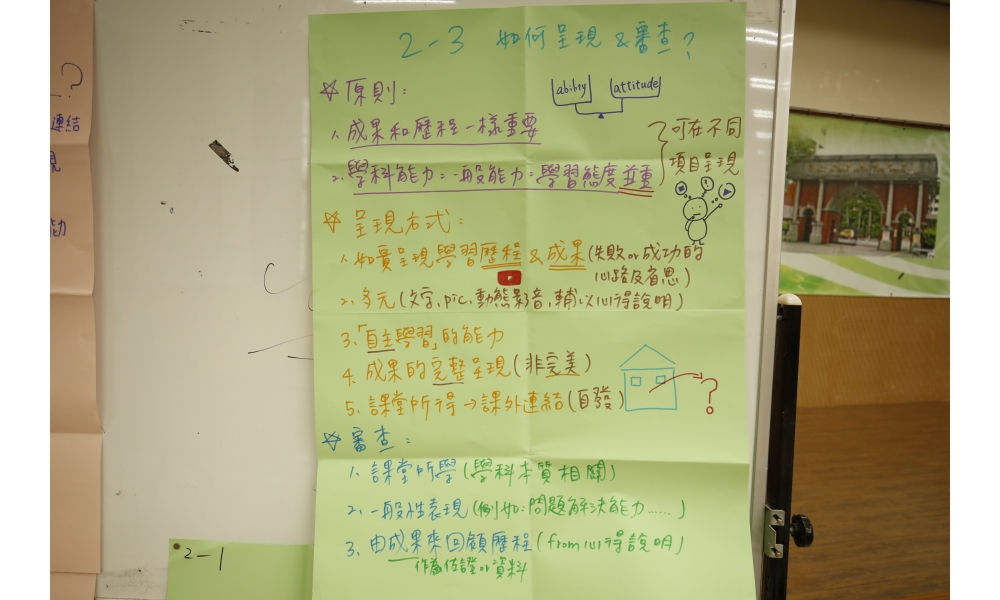 2-3 如何呈現 & 審查?
☆ 原則:
ability attitude
1. 成果和歷程一樣重要
2. 學科能力=一般能力=學習態度並重
可在不同
項目呈現
☆ 呈現方式:
1. 如實呈現學習歷程 & 成果(失敗 or 成功的
心路及省思)
2. 多元(文字、pic、動態影音,輔以心得說明)
3.「自主學習」的能力
4. 成果的完整呈現(非完美)
5. 課堂所得→課外連結(自發)
?
☆ 審查:
1. 課堂所學(學科本質相關)
2. 一般性表現(例如:問題解決能力......)
3. 由成果來回顧歷程(from心得說明)
作為佐證or資料
2-1
?
連結
能力